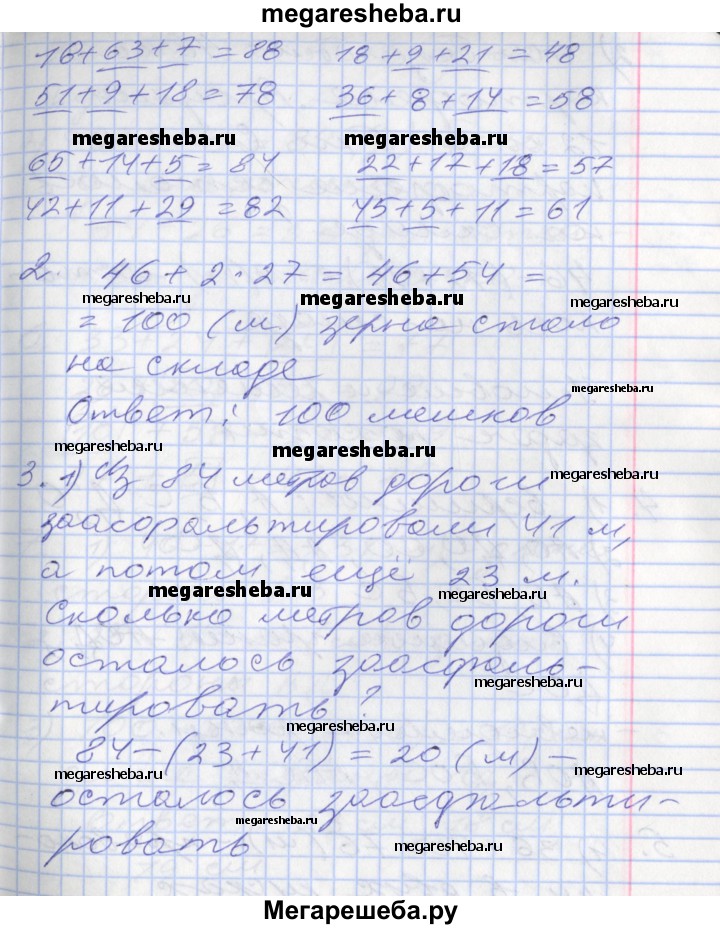 megaresheba.ru
18+63+7=88 18+9+21=48
51+9+18=78 36+8+14=58
megaresheba.ru megaresheba.ru
65+14+5=84 22+17+18=57
42+11+29=82 45+5+11=61
2. 46+2·27=46+54=
megaresheba.ru megaresheba.ru megaresheba.ru
=100 (м) зерна стало
на складе
megaresheba.ru
Ответ: 100 мешков
megaresheba.ru megaresheba.ru
3. 1) Из 84 метров дороги
заасфальтировали 41 м,
а потом ещё 23 м.
megaresheba.ru megaresheba.ru
Сколько метров дороги
осталось заасфаль-
megaresheba.ru
тировать?
megaresheba.ru
84-(23+41)=20 (м) -
megaresheba.ru megaresheba.ru
осталось заасфальти-
ровать
megaresheba.ru megaresheba.ru
Мегарешеба.ру